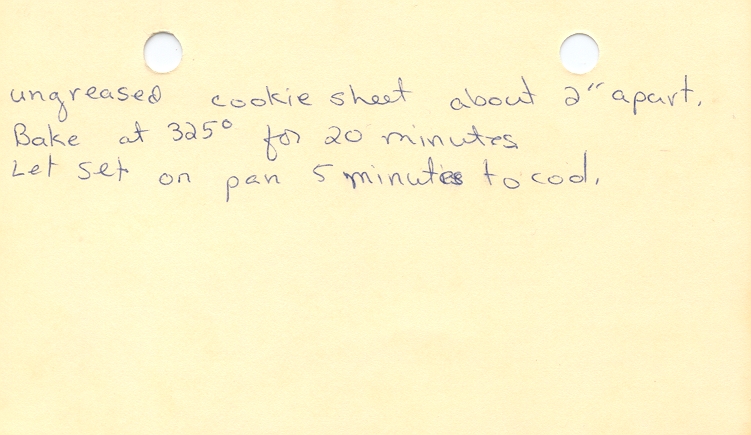 ungreased cookie sheet about 2" apart.
Bake at 325° for 20 minutes
Let set on pan 5 minutes to cool.